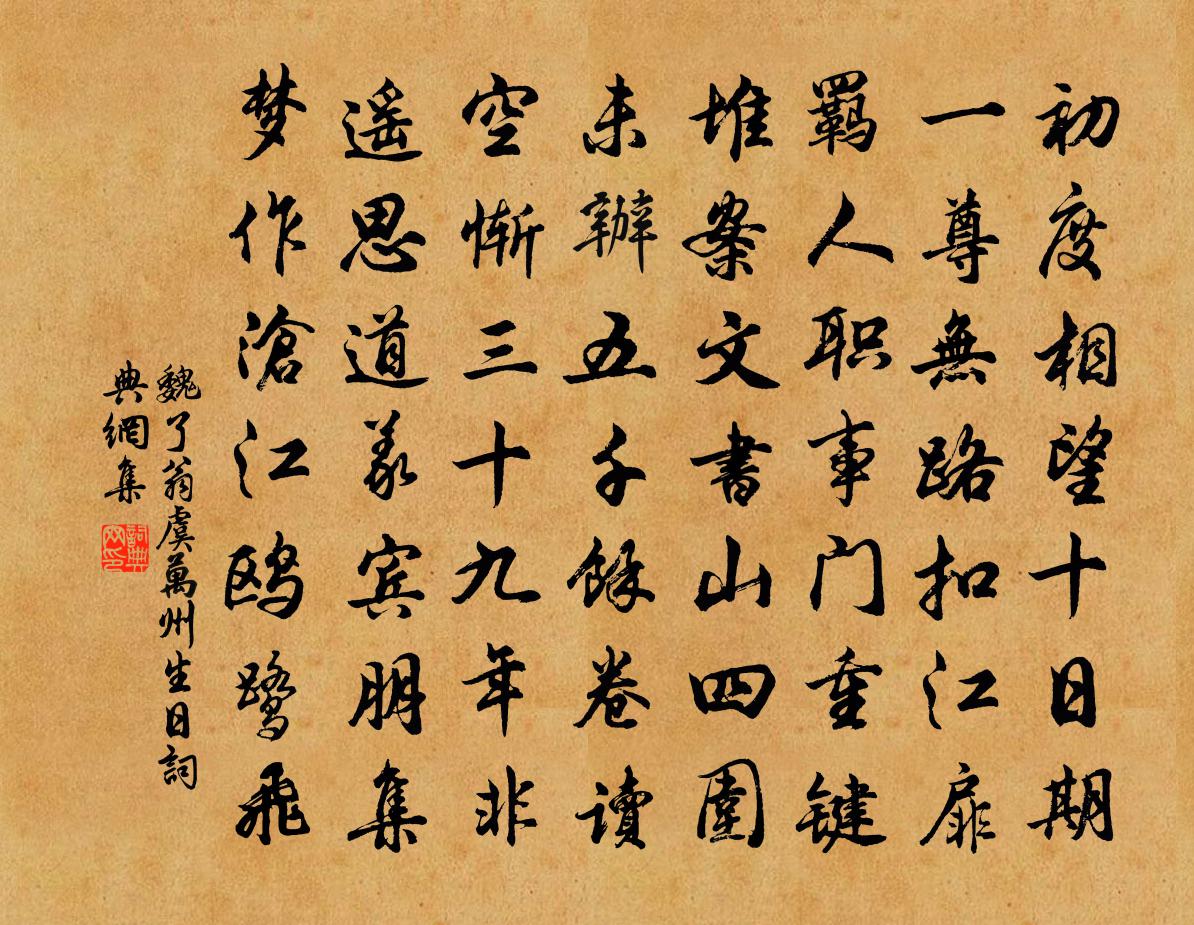 初度相望十日期
一尊無路扣江扉
羁人职事门重键
堆案文書山四圍
未辦五千餘卷读
空惭三十九年非
遥思道義宾朋集
梦作滄江鸥鹭飛
魏了翁虞萬州生日詞
典網集
詞典网印